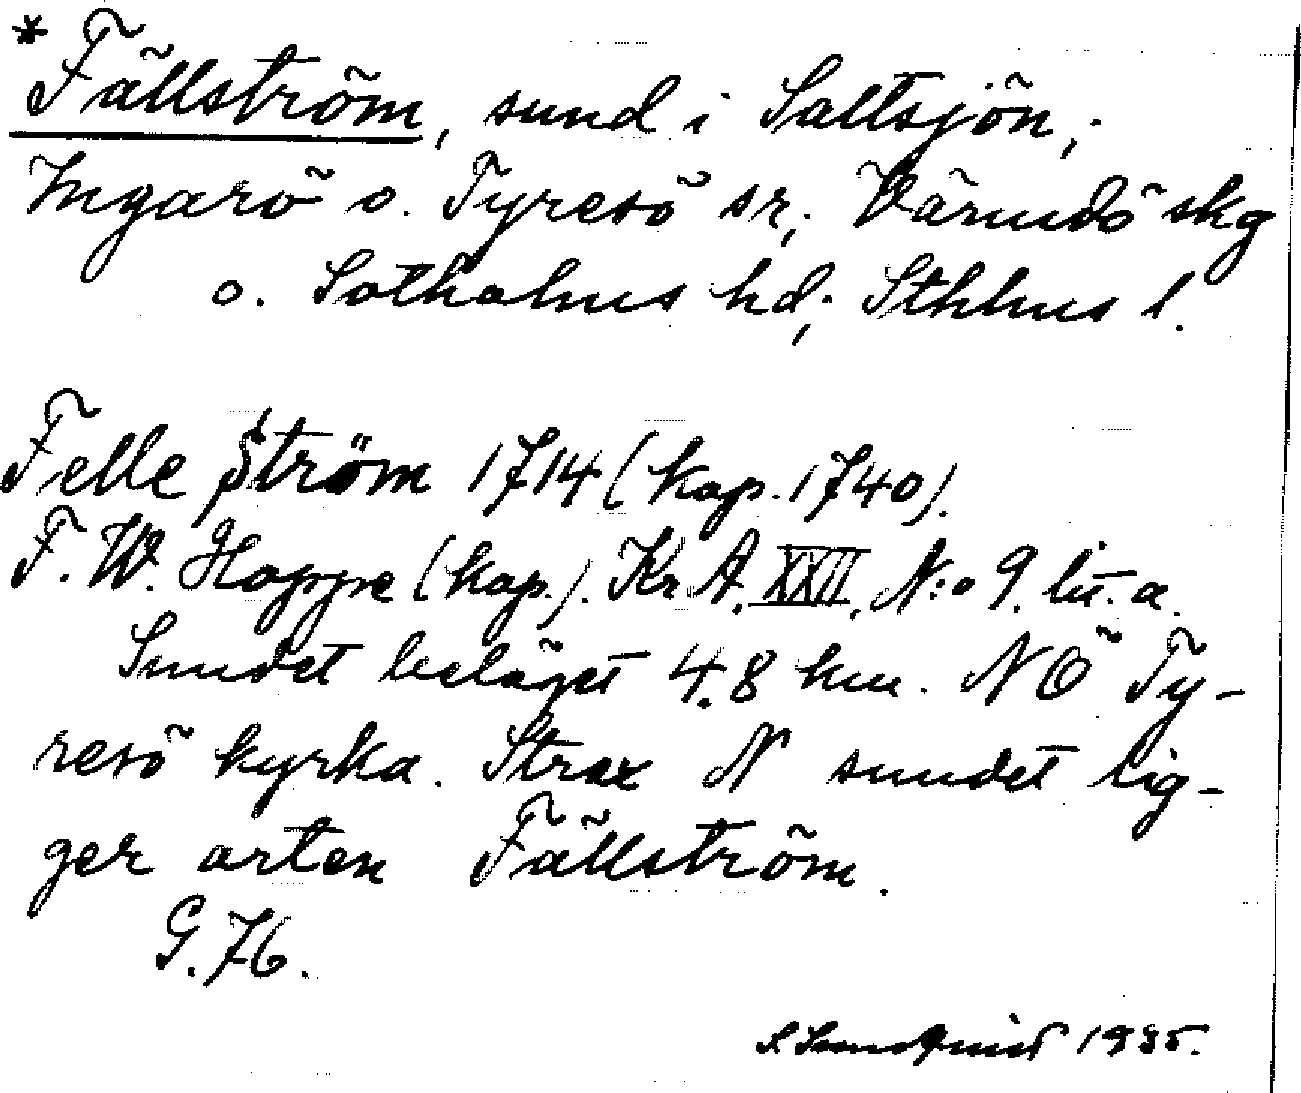 * Fällström, sund i Saltsjön;
Ingarö o. Tyresö sr; Värmdö skg
o. Sotholms hd; Sthlms l.
Felle Ström 1714 (kop. 1740).
F. W. Hoppe (kop.). Kr A. XXII, N:o 9. lit. a.
Sundet beläget 4.8 km. NÖ Ty-
resö kyrka. Strax N sundet lig-
ger orten Fällström.
G. 76.
S. Sundquist 1935.